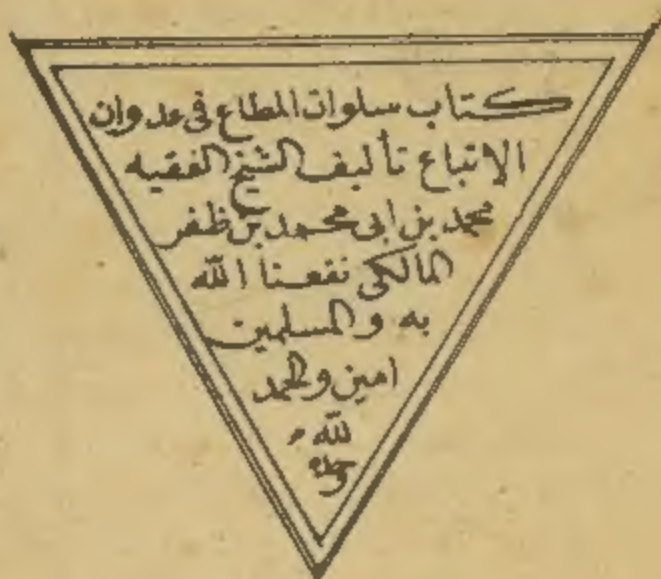 كتاب سلوان المطاع فى عدوان
الاتباع تأليف الشيخ الفقيه
محمد بن ابى محمد بن ظفر
المالكى نفعنا الله
به والمسلمين
امين والحمد
لله
وحده